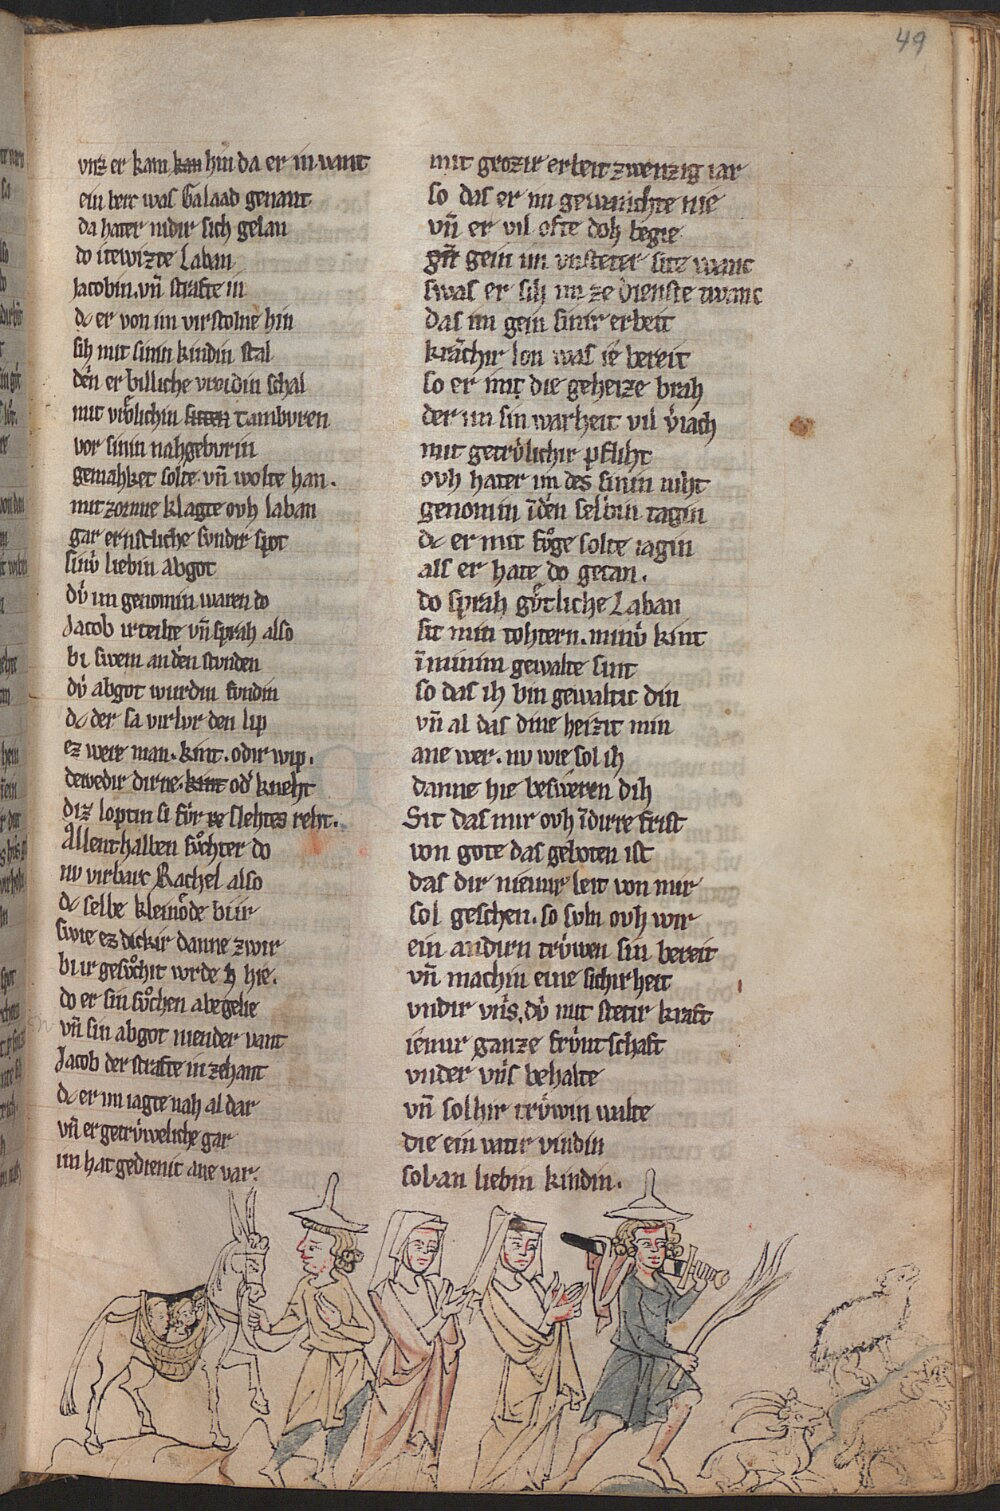 49
vnz er kam kan hin da er in vant
ein berc was Galaad genant
da hater nidir sich gelan
do itewizte Laban
Jacobin. vñ strafte in
dc er von im virstolne hin
sih mit sinin kindin stal
den er billiche vroidin schal
mit vrölichin sitten Tambvren
vor sinin nahgebvrin
gemahket solte. vñ wolte han.
mit zorne klagte ovh laban
gar ernstliche svndir spot
sinv̓ liebin abgot
dv̓ im genomin waren do
Jacob irteilte vñ sprah also
bi swem an den stvnden
dv̓ abgot wurdin fvndin
dc der sa virlvr den lip
ez were man. kint. odir wip.
dewedir dirne. kint od̓ kneht
diz loptin si fv̓r re slehtes reht.
Allenthalben sv̊chter do
nv virbarc Rachel also
dc selbe kleinöde bi ir
swie ez dickir danne zwir
bi ir gesv̊chit wrde hie.
do er sin sv̊chen abegelie
vñ sin abgot niender vant
Jacob der strafte in zehant
dc er im iagte nah al dar
vñ er getrv̓weliche gar
im hat gedienit ane var.
mit grozir erbeit zwenzig iar
so das er im gewnichte nie
vñ er vil ofte doh begie
gñ gein im vnsteter site wanc
swas er sih im ze dienste twanc
das im gein sinir erbeit
krächir lon was ie bereit
so er imt die geheize brah
der im sin warheit vil v̓iach
mit getrv̓lichir pfliht
ovh hater im des sinin niht
genomin ī den selbin tagin
dc er mit fv̊ge solte iagin
als er hate do getan.
do sprah gv̊tliche Laban
sit min tohtern. minv̓ kint
ī minim gewalte sint
so das ih bin gewaltic din
vñ al das dine heizit min
ane wer. nv wie sol ih
danne hie beswêren dih
Sit das mir ovh ī dirre frist
von gote das geboten ist
das dir niemir leit von mir
sol geschen. so svln ovh wir
ein andirn trv̓wen sin bereit
vñ machin eine sichirheit
vndir vns. dv̓ mit stetir kraft
iemir ganze frv̓ntschaft
vnder vns behalte
vñ solhir trv̓win walte
die ein vatir vindin
sol an liebin kindin.